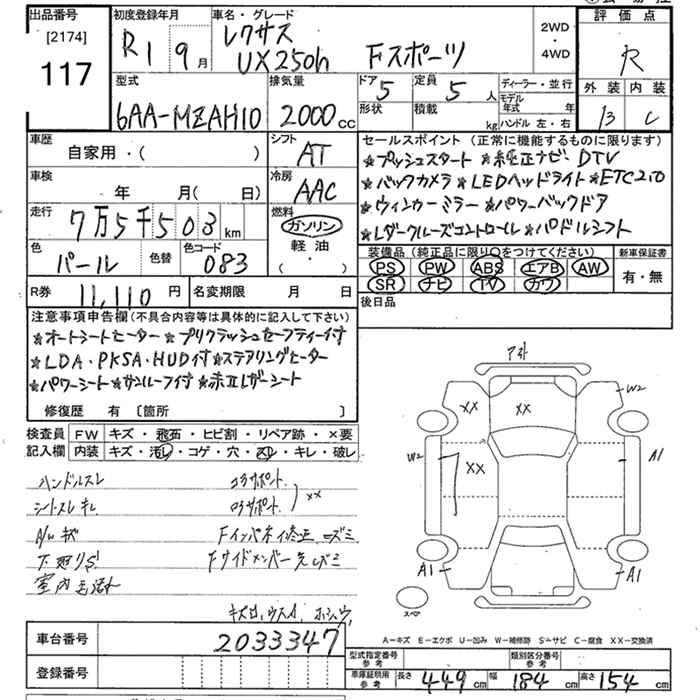 出品番号
[2174]
117
初度登録年月
R1 9月
車名・グレード
レクサス
UX250h Fスポーツ
2WD
・
4WD
評価点
R
外装 内装
B C
型式
6AA-MZAH10
排気量
2000 cc
ドア 5
定員 5 人
形状
積載 kg
ディーラー・並行
モデル年式 年
ハンドル 左・右
車歴
自家用・( )
シフト
AT
車検
年 月( 日)
冷房
AAC
走行
7万5千503 km
燃料
ガソリン
軽油
( ・ )
色
パール
色替
色コード
083
R券 11,110 円
名変期限 月 日
セールスポイント(正常に機能するものに限ります)
★プッシュスタート ★純正ナビ DTV
★バックカメラ ★LEDヘッドライト ★ETC2.0
★ウィンカーミラー ★パワーバックドア
★レダークルーズコントロール ★パドルシフト
装備品(純正品に限り○をつけてください)
PS PW ABS エアB AW
SR ナビ TV カワ
新車保証書
有・無
後日品
注意事項申告欄(不具合内容等は具体的に記入して下さい)
★オートシートヒーター ★プリクラッシュセーフティー付
★LDA・PKSA・HUD付 ★ステアリングヒーター
★パワーシート ★サンルーフ付 ★赤エレザーシート
修復歴 有〔箇所 〕
検査員記入欄
FW キズ・飛石・ヒビ割・リペア跡・×要
内装 キズ・汚レ・コゲ・穴・スレ・キレ・破レ
ハンドルスレ
シートスレ キレ
A/W キズ
下廻りS
コアサポート
ロアサポート
××
Fインパネイ修正
Fサイドメンバー先
アト
XX
XX
XX
W2
W2
A1
A1
A1
スペア
A-キズ E-エクボ U-凹み W-補修跡 S-サビ C-腐食 XX-交換済
車台番号
2033347
登録番号
型式指定番号
参考
類別区分番号
参考
車庫証明用
参考
長さ 449 cm 幅 184 cm 高さ 154 cm